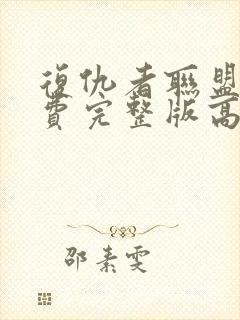 復仇者聯盟
費完整版高
邵素雯